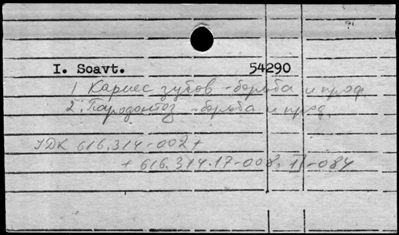 I. Soavt. 54290
1 Кариес зубов - борьба и проф.
2. Пародонтоз - борьба и проф.
УДК 616.314-002+
+ 616.314.17-008.11-084